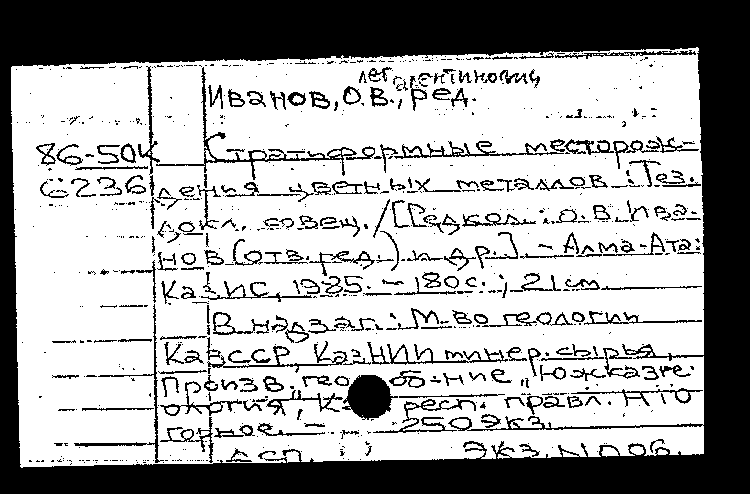 лег алентинович
Иванов, О.В., ред.
86-50К Стратиформные месторож-
6236 дения цветных металлов: Тез.
докл. совещ. / [Редкол.: О.В. Ива-
нов (отв. ред.) и др.]. - Алма-Ата:
КазИС, 1985. - 180 с.; 21 см.
В надзаг.: М-во геологии
КазССР, КазНИИ минер. сырья,
Произв. гео об-ние „Южказге-
ология, К респ. правл. НТО
горное. - 250 экз.
экз. N 006.